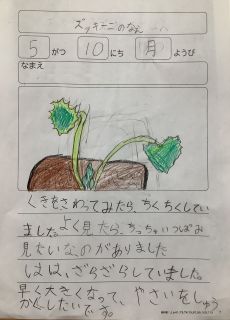 ズッキーニのなえ
5 がつ 10 にち 月 ようび
なまえ
くきをさわってみたら、ちくちくしてい
ました。よく見たら、ちっちゃいつぼみ
見たいな、のがありました
はは、ざらざらしていました。
早く大きくなって、やさいをしゅう
かくしたいです。